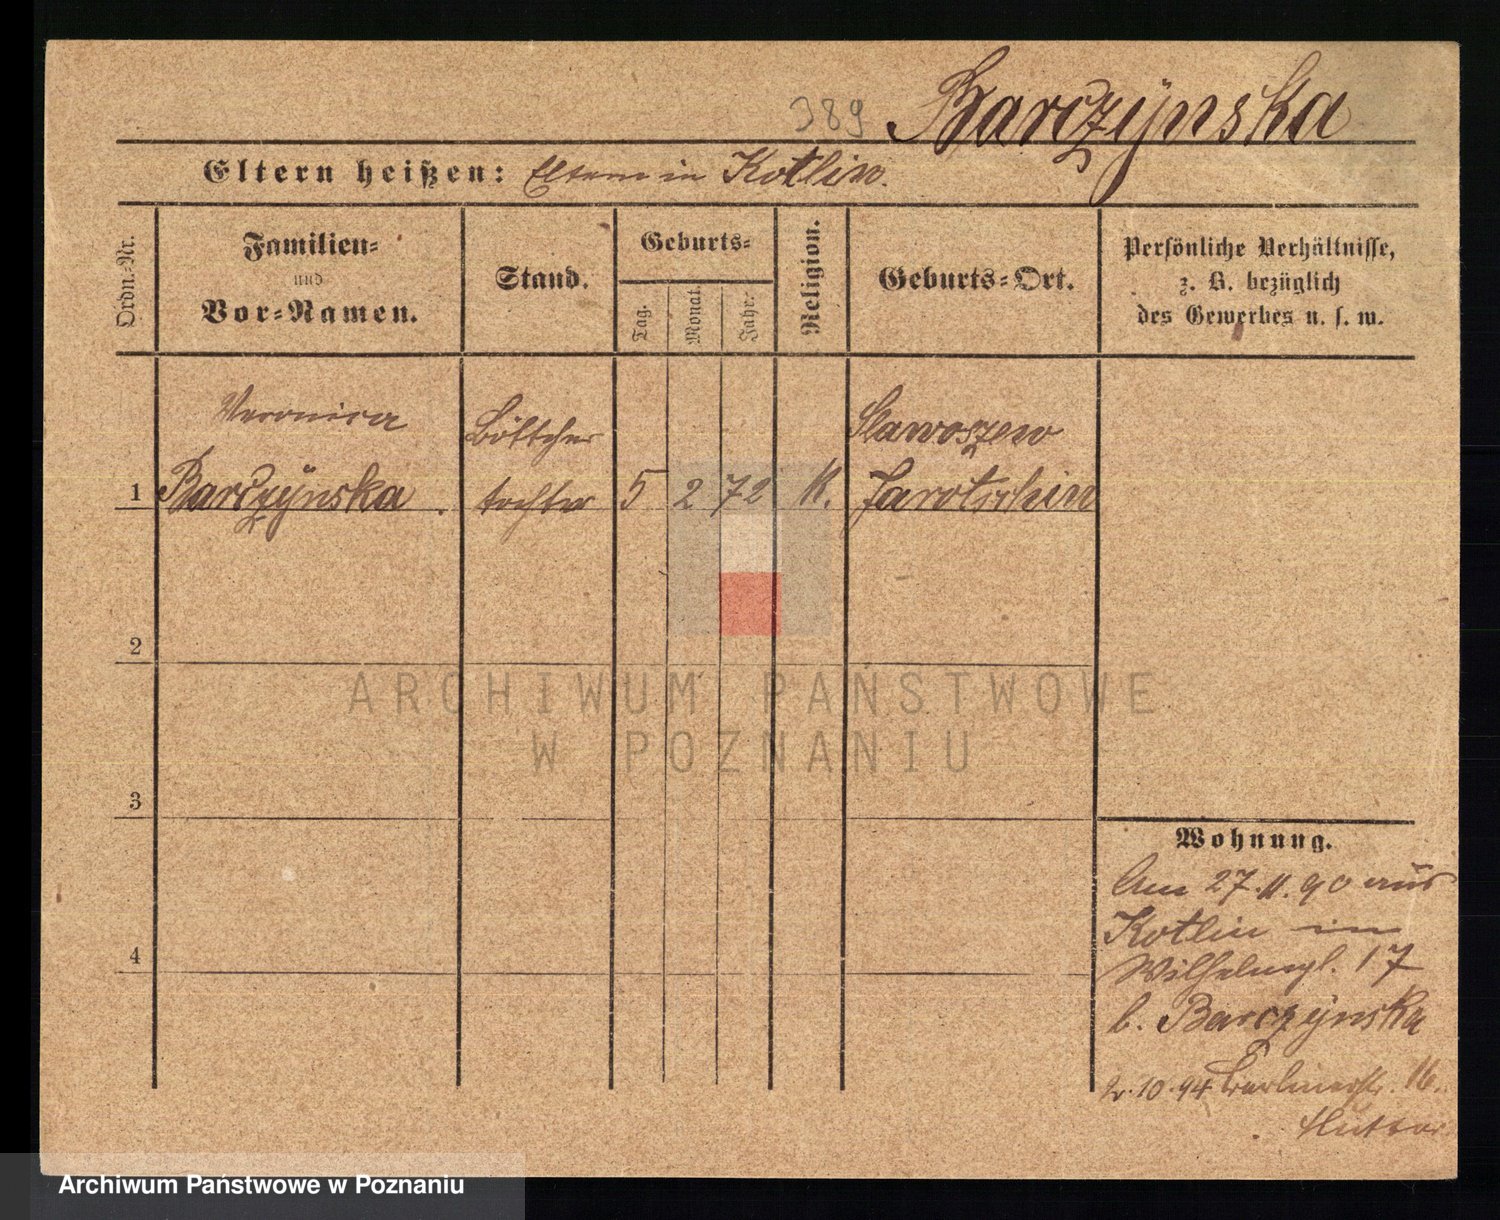 389 Barczÿnska
Eltern heißen: Eltern in Kotlin.
Ordn.-Nr.
Familien-
und
Vor-Namen.
Stand.
Geburts-
Tag.
Monat.
Jahr.
Religion.
Geburts-Ort.
Persönliche Verhältnisse,
z. B. bezüglich
des Gewerbes u. s. w.
Veronica
Böttcher
Slawoszew
1 Barczÿnska . tochter 5 2 72 K. Jarotschin
2
ARCHIWUM PANSTWOWE
W POZNANIU
3
4
Wohnung.
Am 27.11.90 aus
Kotlin in
Wilhelmspl. 17
b. Barczÿnska
2.10.94 Berlinerstr. 16.
Archiwum Państwowe w Poznaniu